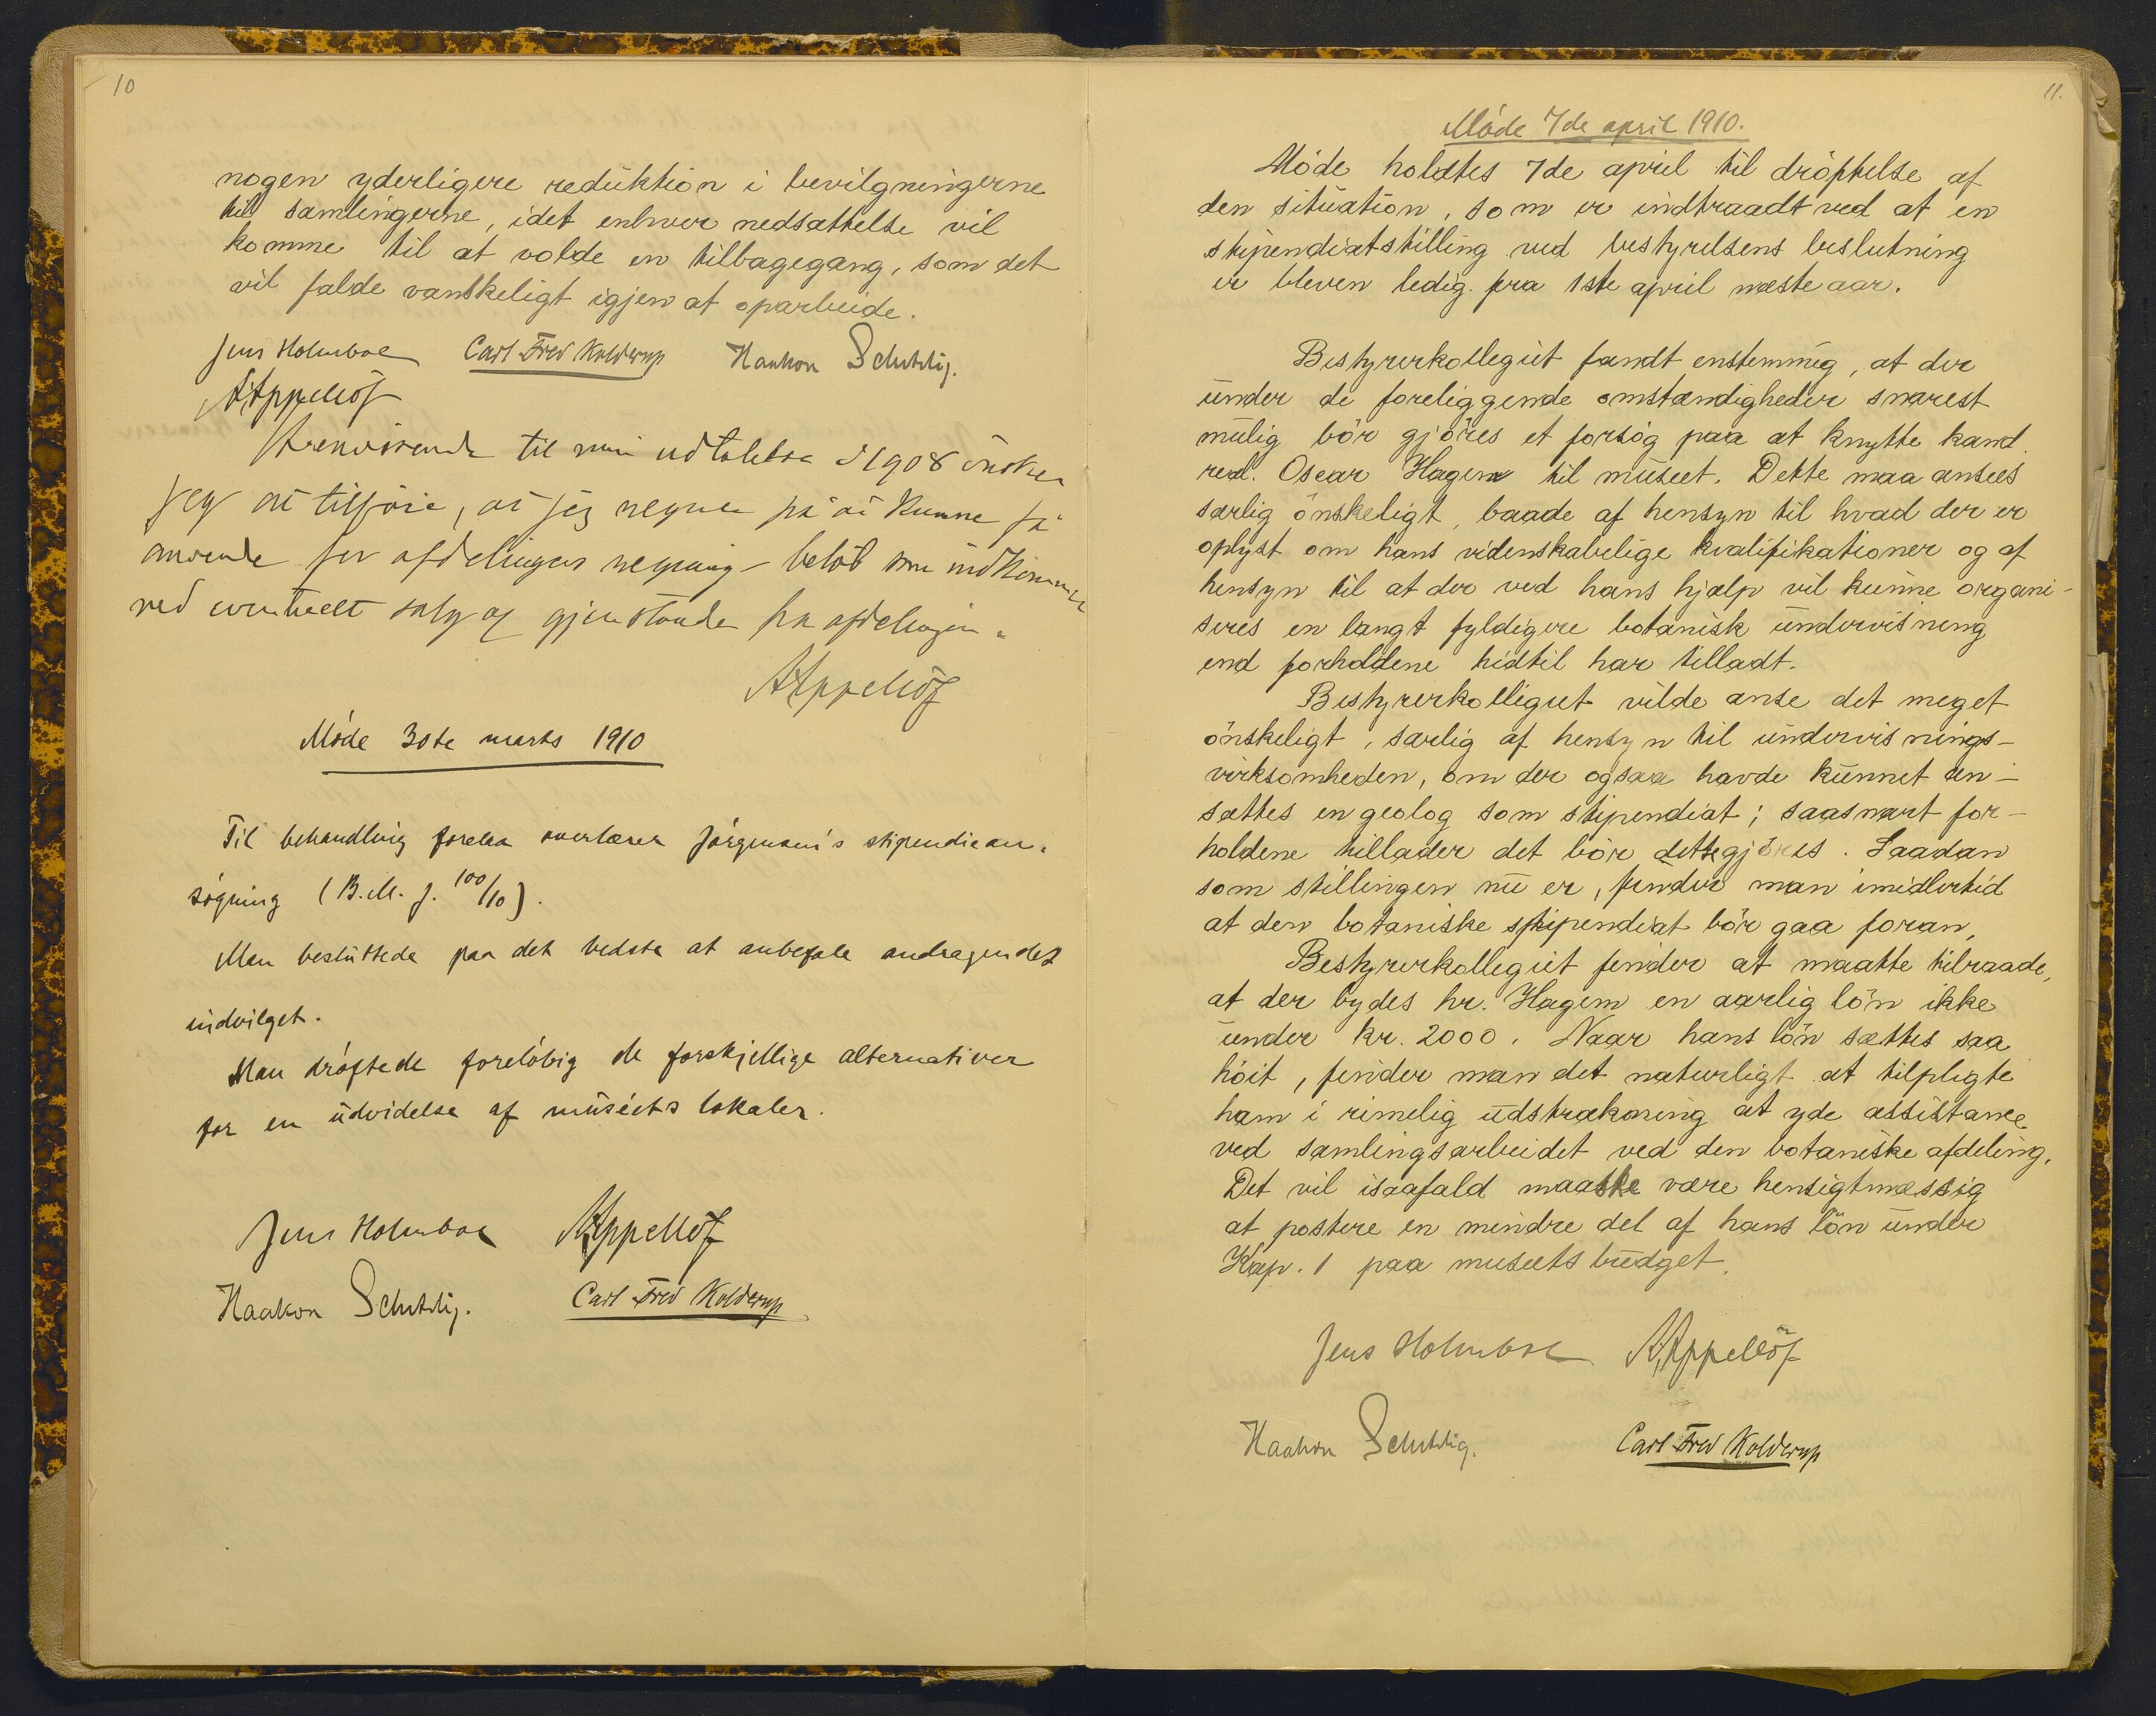 10
nogen yderligere reduktion i bevilgningerne
til samlingerne, idet enhver nedsættelse vil
komme til at volde en tilbagegang, som det
vil falde vanskeligt igjen at oparbeide.
Jens Holmboe Carl Fred Kolderup Haakon Schetelig.
A Appellöf
til min udtalelse i 1908 önsker
jeg at tilföie, at jeg regner på at kunne få
anvende for afdelingens regning beløb som indkommer
ved eventuelt salg af gjenstande fra afdelingen.
A Appellöf
Möde 30te marts 1910
Til behandling forelaa overlærer Jörgensen's stipendiean-
sögning (B.M. j. 100/10).
Man besluttede paa det bedste at anbefale andragendet
indvilget.
Man dröftede forelöbig de forskjellige alternativer
for en udvidelse af muséets lokaler.
Jens Holmboe A Appellöf
Haakon Schetelig. Carl Fred Kolderup
11.
Möde 7de april 1910.
Möde holdtes 7de april til dröftelse af
den situation, som er indtraadt ved at en
stipendiatstilling ved bestyrelsens beslutning
er bleven ledig fra 1ste april næste aar.
Bestyrerkollegiet fandt enstemmig, at der
under de foreliggende omstændigheder snarest
mulig bör gjöres et forsög paa at knytte kand.
real. Oscar Hagem til museet. Dette maa ansees
særlig önskeligt, baade af hensyn til hvad der er
oplyst om hans videnskabelige kvalifikationer og af
hensyn til at der ved hans hjælp vil kunne organi-
seres en langt fyldigere botanisk undervisning
end forholdene hidtil har tilladt.
Bestyrerkollegiet vilde anse det meget
önskeligt, særlig af hensyn til undervisnings-
virksomheden, om der ogsaa havde kunnet an-
sættes en geolog som stipendiat; saasnart for-
holdene tillader det bör dette gjöres. Saadan
som stillingen nu er, finder man imidlertid
at den botaniske stipendiat bör gaa foran.
Bestyrerkollegiet finder at maatte tilraade,
at der bydes hr. Hagem en aarlig lön ikke
under kr. 2000. Naar hans lön sættes saa
höit, finder man det naturligt at tilpligte
ham i rimelig udstrækning at yde assistance
ved samlingsarbeidet ved den botaniske afdeling.
Det vil isaafald maaske være hensigtmæssig
at postere en mindre del af hans lön under
Kap. 1 paa museets budget.
Jens Holmboe A Appellöf
Haakon Schetelig. Carl Fred Kolderup